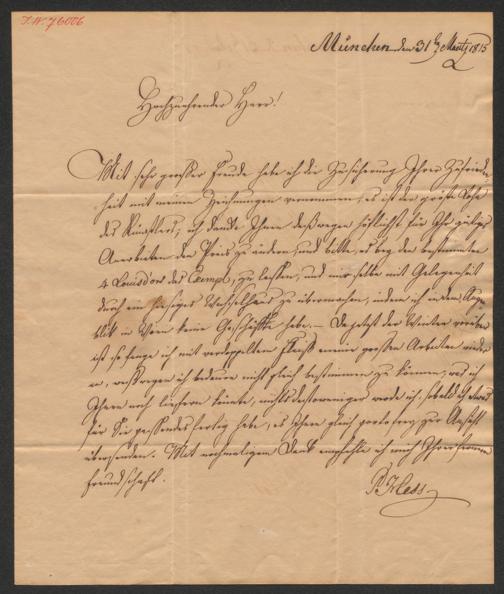 I.N. 76006
München den 31 t Mertz 1815
Hochzuehrender Herr!
Mit sehr grosser Freude habe ich die Zusicherung Ihrer Zufrieden
heit mit meinen Zeichnungen vernommen, es ist der größte Lohn
des Künstlers; ich danke Ihnen deßwegen höflichst für Ihr gütiges
Anerbieten den Preis zu ändern, und bitte, es bey den bestimmten
4 Louisd'or das Exempl, zu lassen, und mir selbe mit Gelegenheit
durch ein hiesiges Wechselhaus zu übermachen, indem ich in dem Augen
blick in Wien keine Geschäfte habe. — Da jetzt der Winter vorüber
ist so fange ich mit verdoppelten Fleiß meine grossen Arbeiten wieder
an, weßwegen ich bedaure nicht gleich bestimmen zu können, was ich
Ihnen noch liefern könnte, nichtsdestoweniger werde ich, sobald ich etwas
für Sie passendes fertig habe, es Ihnen gleich portofrey zur Ansicht
übersenden. Mit nochmaligem Dank empfehle ich mich Ihrer
Freundschaft.
P. Hess